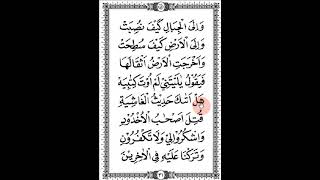 وَاِلَى الْجِبَالِ كَيْفَ نُصِبَتْ
وَاِلَى الْاَرْضِ كَيْفَ سُطِحَتْ
وَاَخْرَجَتِ الْاَرْضُ اَثْقَالَهَا
فَيَقُوْلُ يٰلَيْتَنِيْ لَمْ اُوْتَ كِتٰبِيَهْ
هَلْ اَتٰىكَ حَدِيْثُ الْغَاشِيَةِ
قُتِلَ اَصْحٰبُ الْاُخْدُوْدِ
وَاشْكُرُوْا لِيْ وَلَا تَكْفُرُوْنِ
وَتَرَكْنَا عَلَيْهِ فِي الْاٰخِرِيْنَ